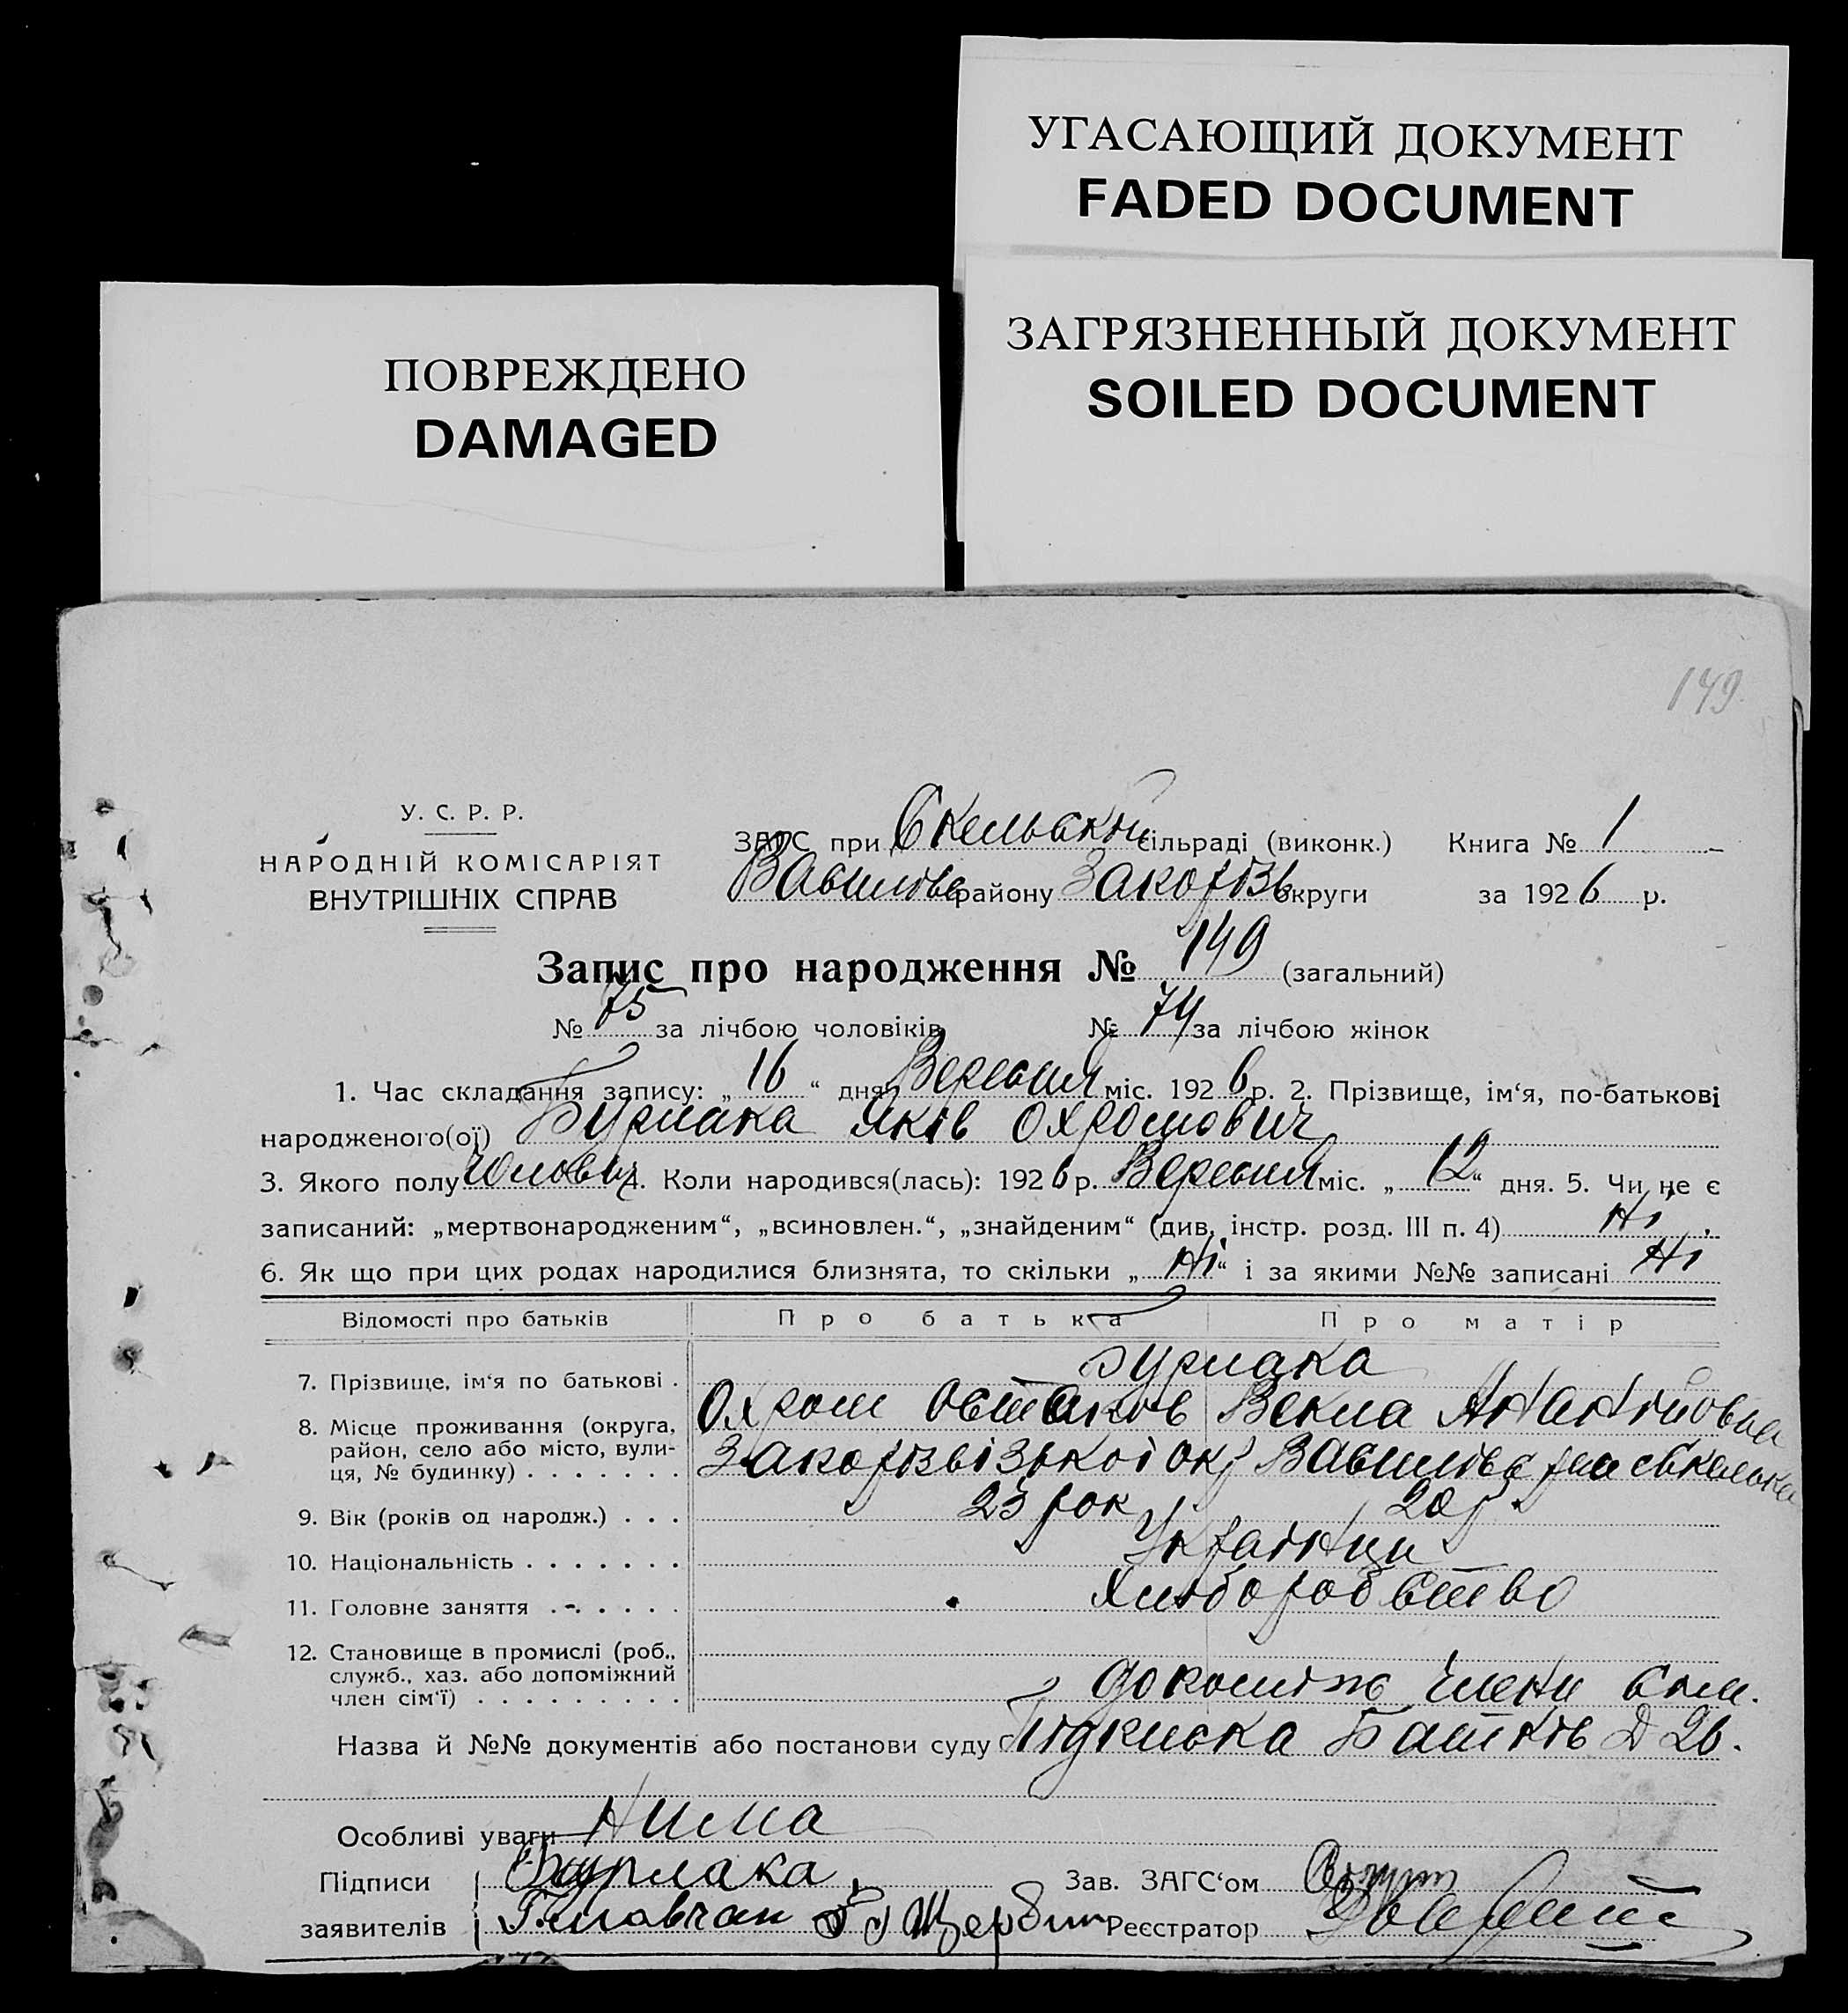 УГАСАЮЩИЙ ДОКУМЕНТ
FADED DOCUMENT
ЗАГРЯЗНЕННЫЙ ДОКУМЕНТ
SOILED DOCUMENT
ПОВРЕЖДЕНО
DAMAGED
149.
У. С. Р. Р.
НАРОДНІЙ КОМІСАРІЯТ
ВНУТРІШНІХ СПРАВ
ЗАГС при Скельській сільраді (виконк.) Книга № 1
району округи за 1926 р.
Запис про народження № 149 (загальний)
№ 75 за лічбою чоловіків № 74 за лічбою жінок
1. Час складання запису: „16“ дня Вересня міс. 1926 р. 2. Прізвище, ім‘я, по-батькові
народженого(ої) Бурлака Яків Охромович
3. Якого полу Чолович 4. Коли народився(лась): 1926 р. Вересня міс. „12“ дня. 5. Чи не є
записаний: „мертвонародженим“, „всиновлен.“, „знайденим“ (див. інстр. розд. III п. 4) Ні
6. Як що при цих родах народилися близнята, то скільки „Ні“ і за якими №№ записані Ні
Відомості про батьків Про батька Про матір
7. Прізвище, ім‘я по батькові . Бурлака
Охром Остапов Векла
8. Місце проживання (округа,
район, село або місто, вули-
ця, № будинку) . . . . . . .
9. Вік (років од народж.) . . . 23 рок 20 р.
10. Національність . . . . . . . Українци
11. Головне заняття . . . . . . Хліборобство
12. Становище в промислі (роб.,
служб., хаз. або допоміжний
член сім‘ї) . . . . . . . . . допоміж члени сем.
Назва й №№ документів або постанови суду Підписка Батьків Д 26.
Особливі уваги Нима
Підписи Бурлака Зав. ЗАГС‘ом
заявителів Головчан Щербин Реєстратор